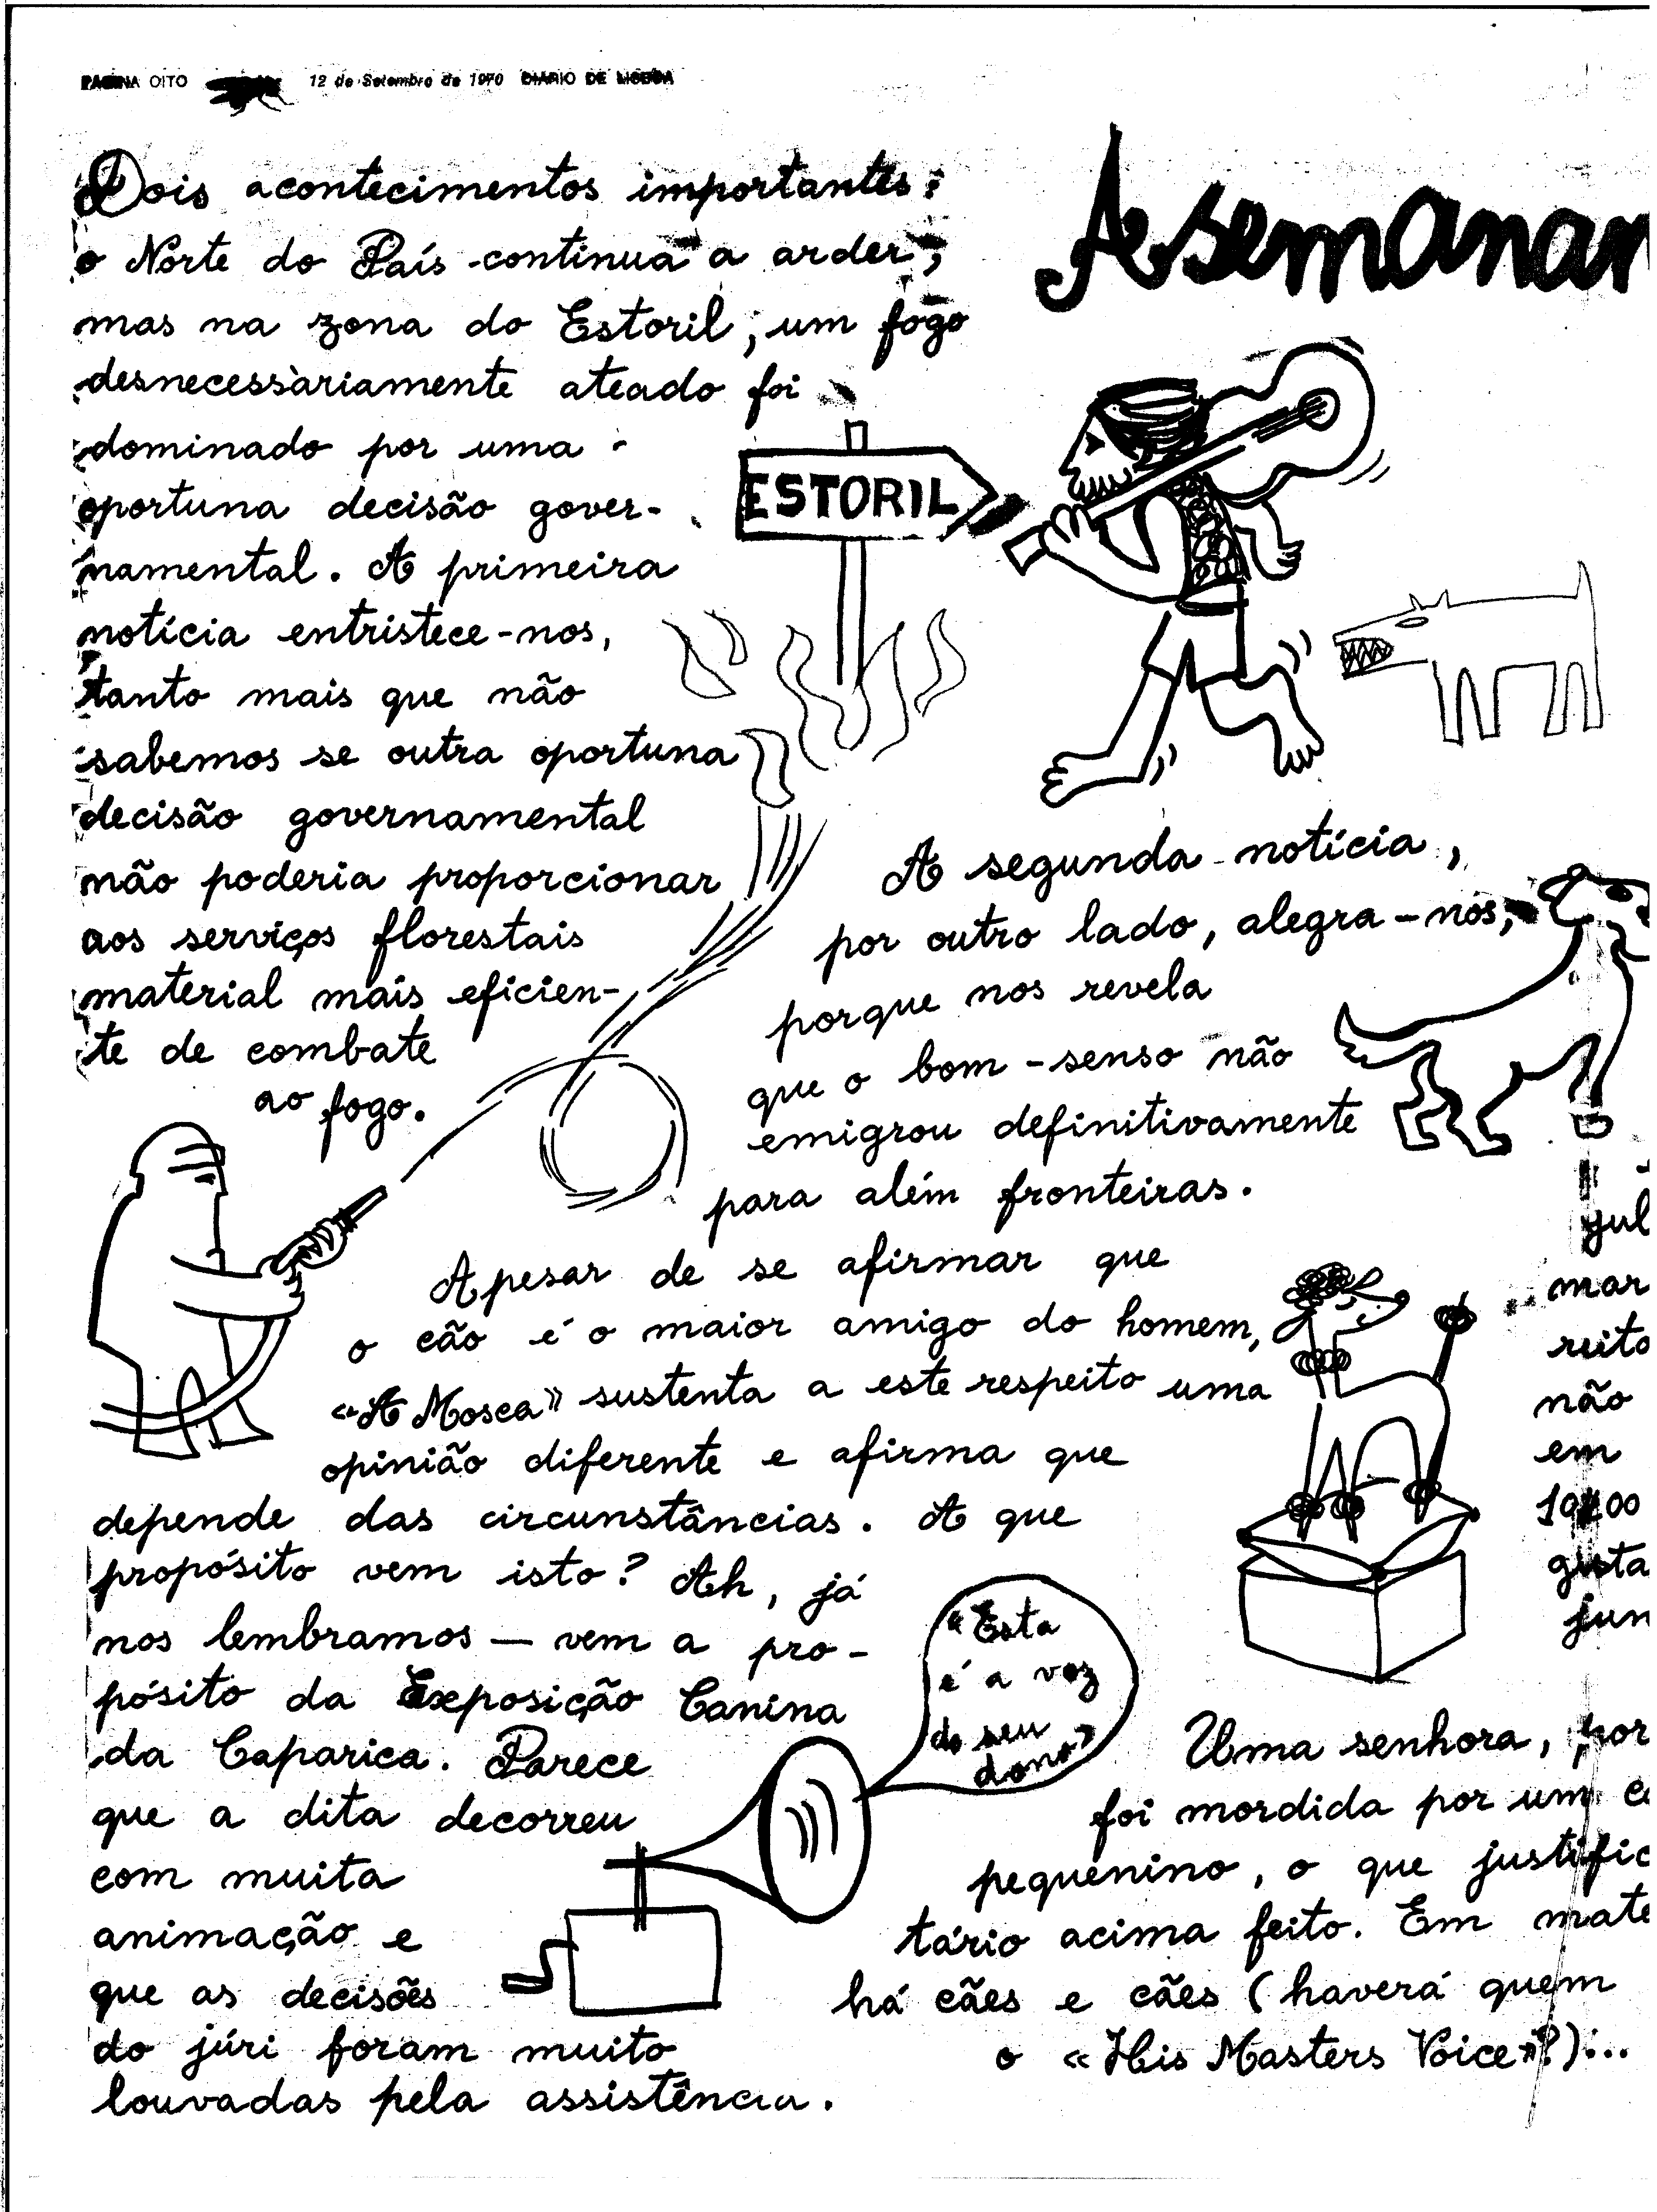 PAGINA OITO 12 de Setembro de 1970 DIÁRIO DE LISBOA
A semana
Dois acontecimentos importantes:
o Norte do País continua a arder,
mas na zona do Estoril, um fogo
desnecessàriamente ateado foi
dominado por uma
oportuna decisão gover-
namental. A primeira
notícia entristece-nos,
tanto mais que não
sabemos se outra oportuna
decisão governamental
não poderia proporcionar
aos serviços florestais
material mais eficien-
te de combate
ao fogo.
ESTORIL
A segunda notícia,
por outro lado, alegra-nos,
porque nos revela
que o bom-senso não
emigrou definitivamente
para além fronteiras.
Apesar de se afirmar que
o cão é o maior amigo do homem,
«A Mosca» sustenta a este respeito uma
opinião diferente e afirma que
depende das circunstâncias. A que
propósito vem isto? Ah, já
nos lembramos — vem a pro-
pósito da Exposição Canina
da Caparica. Parece
que a dita decorreu
com muita
animação e
que as decisões
do júri foram muito
louvadas pela assistência.
«Esta
é a voz
do seu
dono»
jul
mar
reito
não
em
gista
jun
Uma senhora, por
foi mordida por um c
pequenino, o que justific
tário acima feito. Em mate
há cães e cães (haverá quem
o «His Masters Voice»?)...